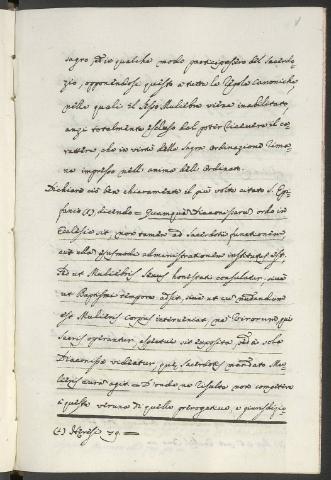 sagro, od in qualche modo partecipassero del Sacerdo-
zio, opponendosi questo a tutte le Regole Canoniche,
nelle quali il Sesso Muliebre viene inabilitato,
anzi totalmente escluso dal poter ricevere il ca-
rattere, che in virtù della Sagra Ordinazione rima-
ne impresso nell' animo delli Ordinati.
Dichiarò ciò ben chiaramente il più volte citato S. Epi-
fanio (1), dicendo = Quamquam Diaconissarum ordo in
Ecclesia sit, non tamen ad Sacerdotii functionem,
aut ullam ejusmodi administrationem institutus est.
sed ut Muliebris Sexus honestati consulatur, sive
ut Baptismi tempore adsit, sive ut cum nudandum
est Mulieris Corpus interveniat, ne Virorum qui
sacris operantur, aspectui sit expositum, sed a sola
Diaconissa videatur, quae Sacerdotis mandato Mu-
lieris curam agit = D'onde ne risulta non competere
a queste veruna di quelle prerogative, e giurisdizio-
(1) Heresi 79. =